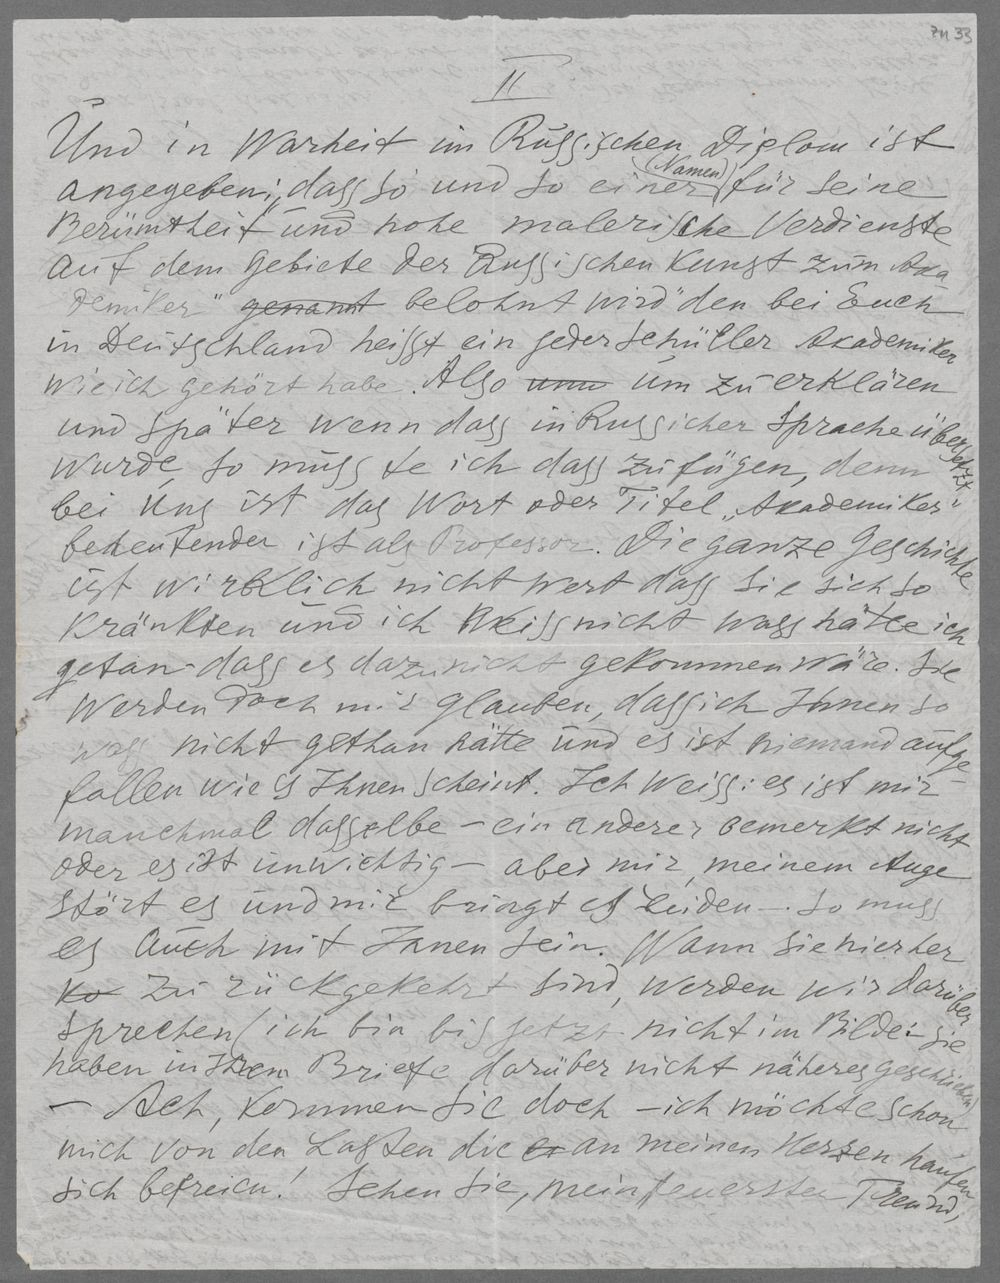 ZM 33
II
Und in Warheit im Russischen Diplom ist
angegeben; dass so und so einer (Namen) für seine
Berümtheit und hohe malerische Verdienste
auf dem Gebiete der Russischen Kunst zum Aka-
demiker" genannt belohnt wird" den bei Euch
in Deutschland heisst ein jeder Schüller Akademiker
wie ich gehört habe. Also um zu erklären
und später wenn dass in Russicher Sprache übersetzt
wurde, so musste ich dass zufügen, denn
bei Uns ist das Wort oder Titel „Akademiker"
bedeutender ist als Professor. Die ganze Geschichte
ist wirklich nicht wert dass Sie sich so
kränkten und ich weiss nicht wass hätte ich
getan dass es dazu nicht gekommen wäre. Sie
werden doch mir glauben, dass ich Ihnen so
wass nicht gethan hätte und es ist niemand aufge-
fallen wie es Ihnen scheint. Ich weiss: es ist mir
manchmal dasselbe – ein anderer bemerkt nicht
oder es ist unwichtig – aber mir, meinem Auge
stört es und mir bringt es Leiden –. So muss
es auch mit Ihnen sein. Wann Sie hierher
ko zurückgekehrt sind, werden wir darüber
sprechen (ich bin bis jetzt nicht im Bilde: Sie
haben in Ihrem Briefe darüber nicht näheres geschrieben)
– Ach, kommen Sie doch – ich möchte schon
mich von den Lasten die an meinen Herzen häufen
sich befreien! Sehen Sie, mein teuersten Freund,